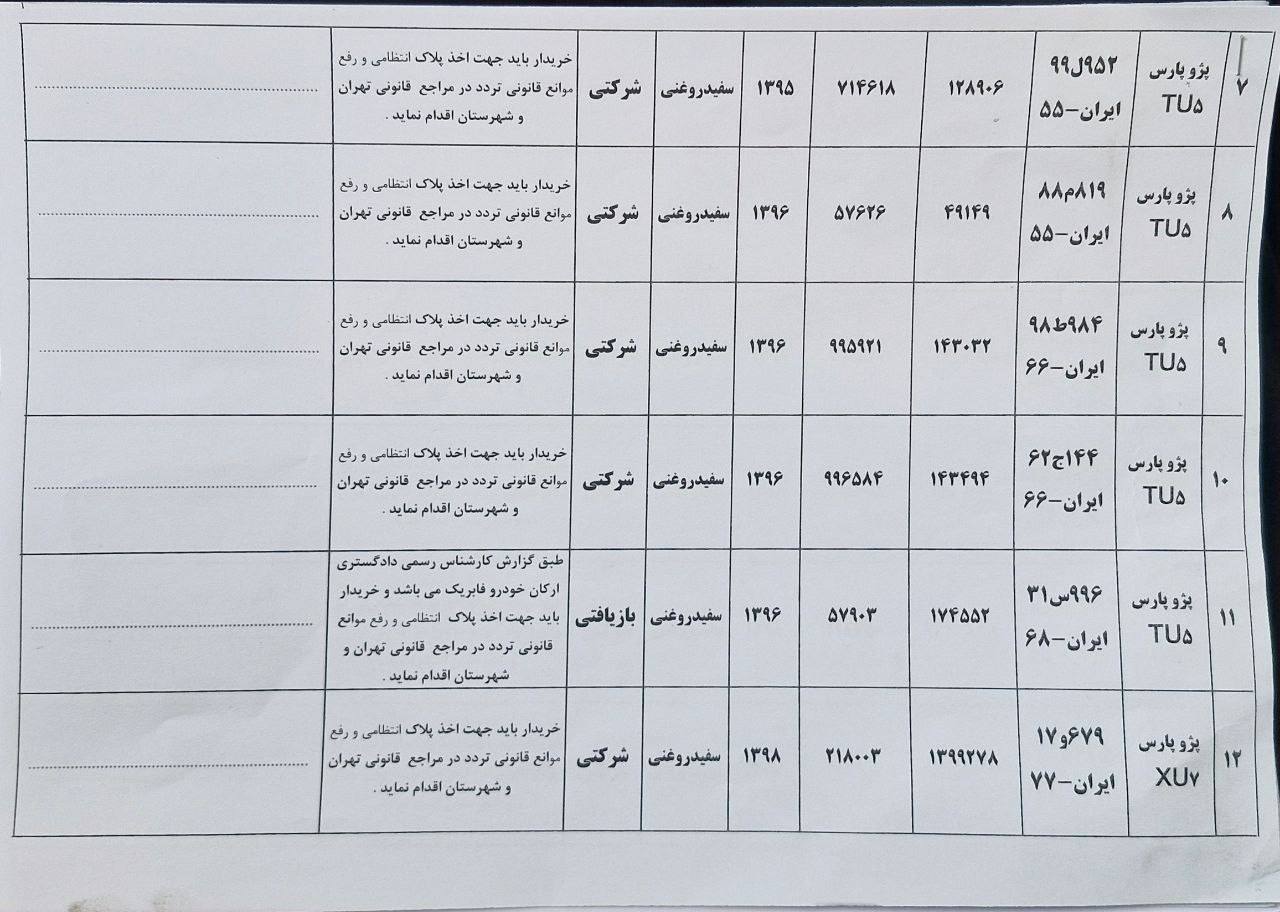 ۷
پژو پارس
TU۵
۹۵۲ل۹۹
ایران-۵۵
۱۲۸۹۰۶
۷۱۴۶۱۸
۱۳۹۵
سفیدروغنی
شرکتی
خریدار باید جهت اخذ پلاک انتظامی و رفع
موانع قانونی تردد در مراجع قانونی تهران
و شهرستان اقدام نماید .
۸
پژو پارس
TU۵
۸۱۹م۸۸
ایران-۵۵
۴۹۱۴۹
۵۷۶۲۶
۱۳۹۶
سفیدروغنی
شرکتی
خریدار باید جهت اخذ پلاک انتظامی و رفع
موانع قانونی تردد در مراجع قانونی تهران
و شهرستان اقدام نماید .
۹
پژو پارس
TU۵
۹۸۴ط۹۸
ایران-۶۶
۱۴۳۰۳۲
۹۹۵۹۲۱
۱۳۹۶
سفیدروغنی
شرکتی
خریدار باید جهت اخذ پلاک انتظامی و رفع
موانع قانونی تردد در مراجع قانونی تهران
و شهرستان اقدام نماید .
۱۰
پژو پارس
TU۵
۱۴۴ج۶۲
ایران-۶۶
۱۴۳۴۹۴
۹۹۶۵۸۴
۱۳۹۶
سفیدروغنی
شرکتی
خریدار باید جهت اخذ پلاک انتظامی و رفع
موانع قانونی تردد در مراجع قانونی تهران
و شهرستان اقدام نماید .
۱۱
پژو پارس
TU۵
۹۹۶س۳۱
ایران-۶۸
۱۷۴۵۵۲
۵۷۹۰۳
۱۳۹۶
سفیدروغنی
بازیافتی
طبق گزارش کارشناس رسمی دادگستری
ارکان خودرو فابریک می باشد و خریدار
باید جهت اخذ پلاک انتظامی و رفع موانع
قانونی تردد در مراجع قانونی تهران و
شهرستان اقدام نماید .
۱۲
پژو پارس
XU۷
۶۷۹و۱۷
ایران-۷۷
۱۳۹۹۲۷۸
۲۱۸۰۰۳
۱۳۹۸
سفیدروغنی
شرکتی
خریدار باید جهت اخذ پلاک انتظامی و رفع
موانع قانونی تردد در مراجع قانونی تهران
و شهرستان اقدام نماید .